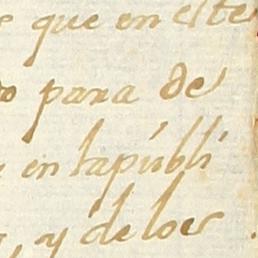 que en el te
para de
en la públi
y de los